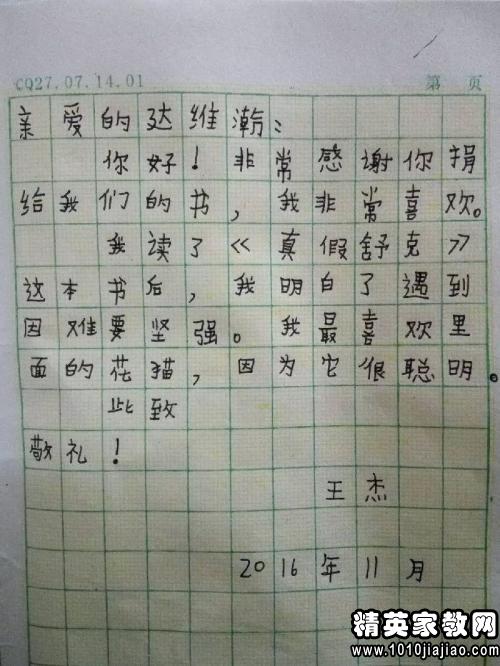 CQ27.07.14.01 第 页
亲爱的达维瀚：
你好！非常感谢你捐
给我们的书，我非常喜欢。
我读了《真假舒克》
这本书后，我明白了遇到
因难要坚强。我最喜欢里
面的花猫，因为它很聪明。
此致
敬礼！
王杰
2016年11月
精英家教网
www.1010jiajiao.com